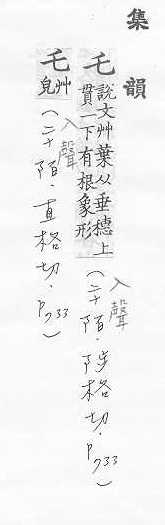 集韻
乇 說文艸葉从垂穗上
貫一下有根象形
(入聲二十陌.陟格切.P733)
乇 艸
皃
(入聲二十陌.直格切.P733)